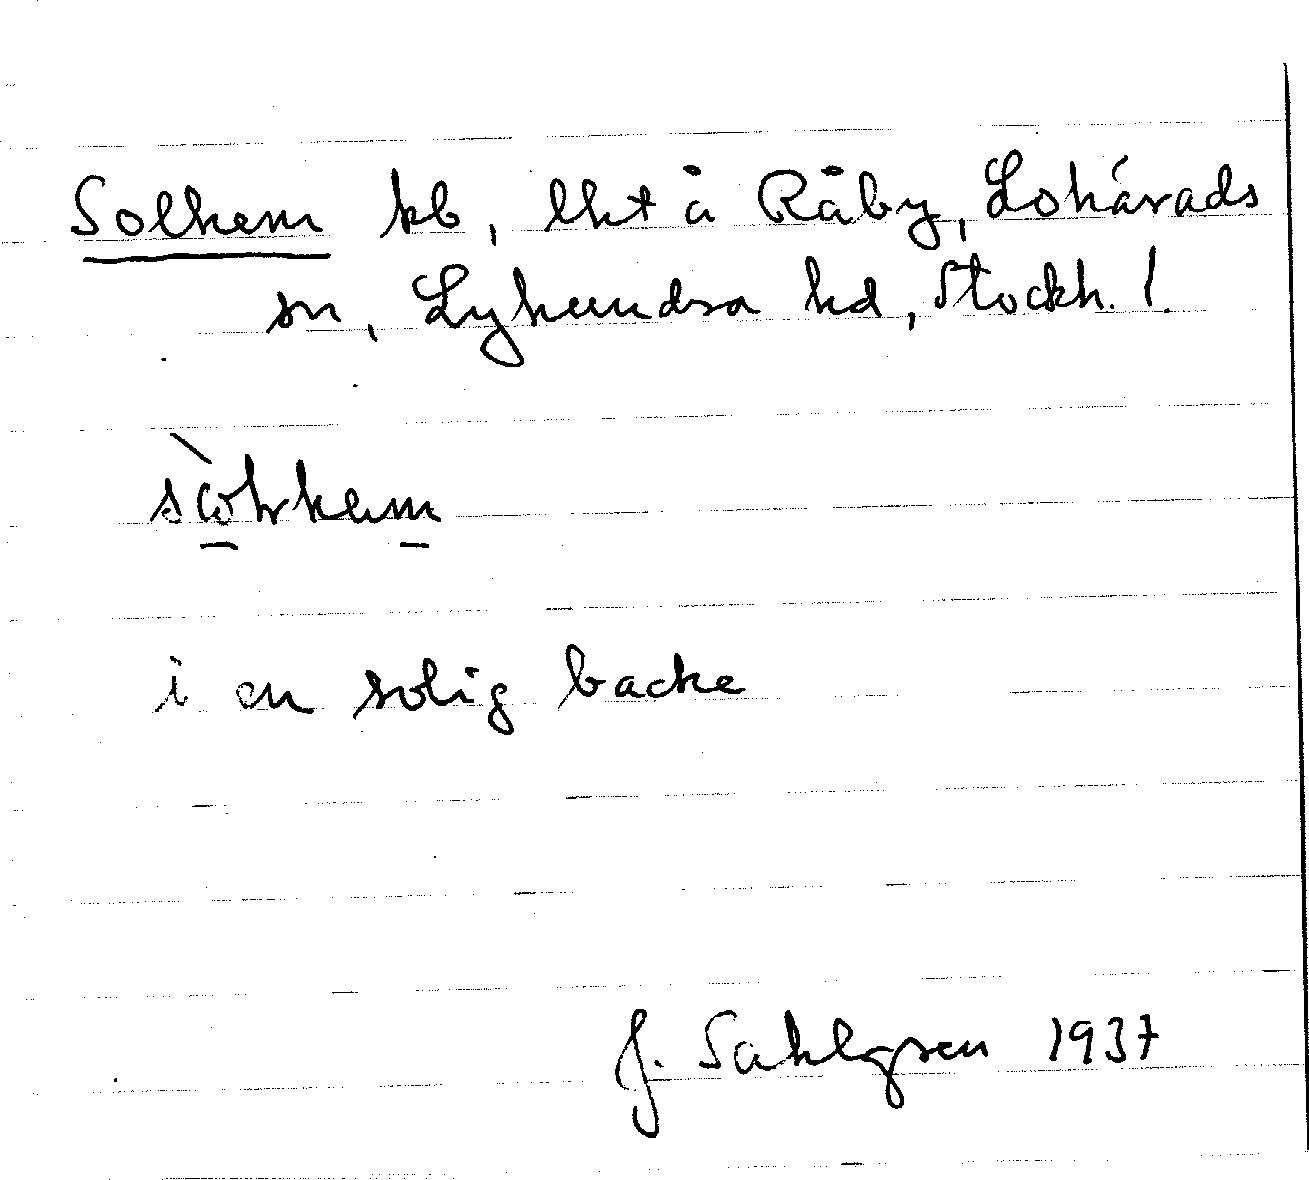 Solhem kb, lht å Råby, Lohärads
sn, Lyhundra hd, Stockh. !
i en solig backe
J. Sahlgren 1937